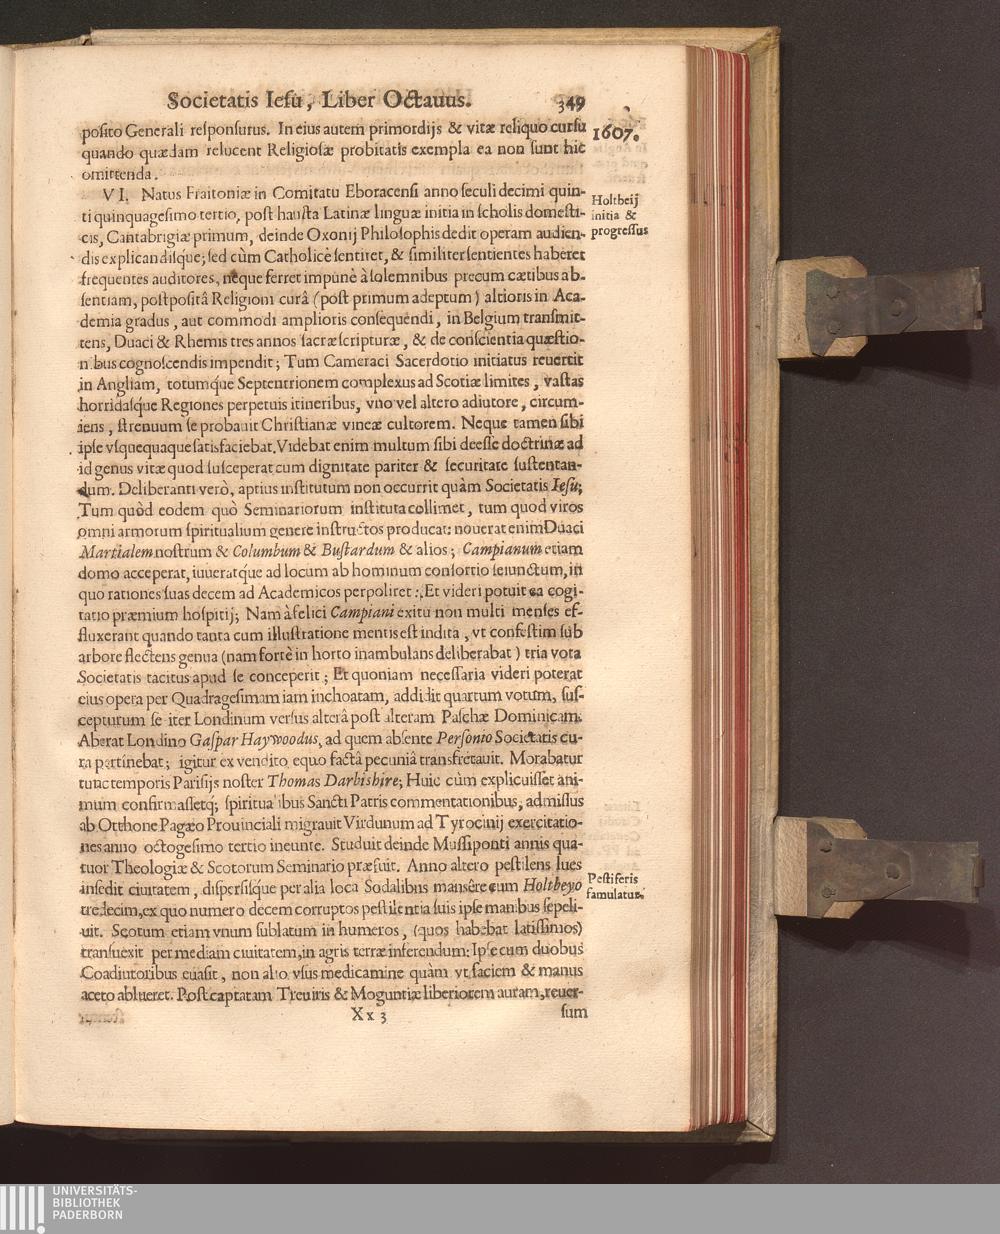 Societatis Iesu, Liber Octauus. 349
posito Generali responsurus. In eius autem primordijs & vitæ reliquo cursu
1607.
quando quædam relucent Religiosæ probitatis exempla ea non sunt hic
omittenda.
VI. Natus Fraitoniæ in Comitatu Eboracensi anno seculi decimi quin-
Holtbeij
initia &
progressus
ti quinquagesimo tertio, post hausta Latinæ linguæ initia in scholis domesti-
cis, Cantabrigiæ primum, deinde Oxonij Philosophis dedit operam audien-
dis explicandisque; sed cùm Catholicè sentiret, & similiter sentientes haberet
frequentes auditores, neque ferret impunè à solemnibus precum cætibus ab-
sentiam, postpositâ Religioni curâ (post primum adeptum) altioris in Aca-
demia gradus, aut commodi amplioris consequendi, in Belgium transmit-
tens, Duaci & Rhemis tres annos sacræ scripturæ, & de conscientia quæstio-
nibus cognoscendis impendit; Tum Cameraci Sacerdotio initiatus reuertit
in Angliam, totumq́ue Septentrionem complexus ad Scotiæ limites, vastas
horridasq́ue Regiones perpetuis itineribus, vno vel altero adiutore, circum-
iens, strenuum se probauit Christianæ vineæ cultorem. Neque tamen sibi
ipse vsquequaque satisfaciebat. Videbat enim multum sibi deesse doctrinæ ad
id genus vitæ quod susceperat cum dignitate pariter & securitate sustentan-
dum. Deliberanti verò, aptius institutum non occurrit quàm Societatis Iesu;
Tum quòd eodem quò Seminariorum instituta collimet, tum quod viros
omni armorum spiritualium genere instructos producat: nouerat enim Duaci
Martialem nostrum & Columbum & Bustardum & alios; Campianum etiam
domo acceperat, iuueratq́ue ad locum ab hominum consortio seiunctum, in
quo rationes suas decem ad Academicos perpoliret: Et videri potuit ea cogi-
tatio præmium hospitij; Nam à felici Campiani exitu non multi menses ef-
fluxerant quando tanta cum illustratione mentis est indita, vt confestim sub
arbore flectens genua (nam fortè in horto inambulans deliberabat) tria vota
Societatis tacitus apud se conceperit; Et quoniam necessaria videri poterat
eius opera per Quadragesimam iam inchoatam, addidit quartum votum, sus-
cepturum se iter Londinum versus alterâ post alteram Paschæ Dominicam.
Aberat Londino Gaspar Haywoodus, ad quem absente Personio Societatis cu-
ra pertinebat; igitur ex vendito equo factâ pecuniâ transfretauit. Morabatur
tunc temporis Parisijs noster Thomas Darbishire; Huic cùm explicuisset ani-
mum confirmassetq́; spiritualibus Sancti Patris commentationibus, admissus
ab Otthone Pagæo Prouinciali migrauit Virdunum ad Tyrocinij exercitatio-
nes anno octogesimo tertio ineunte. Studuit deinde Mussiponti annis qua-
tuor Theologiæ & Scotorum Seminario præfuit. Anno altero pestilens lues
Pestiferis
famulatur.
insedit ciuitatem, dispersisq́ue per alia loca Sodalibus mansêre cum Holtbeyo
tredecim, ex quo numero decem corruptos pestilentia suis ipse manibus sepeli-
uit. Scotum etiam vnum sublatum in humeros, (quos habebat latissimos)
transuexit per mediam ciuitatem, in agris terræ inferendum: Ipse cum duobus
Coadiutoribus euasit, non alio vsus medicamine quàm vt faciem & manus
aceto ablueret. Post captatam Treuiris & Moguntiæ liberiorem auram, reuer-
Xx 3 sum
UNIVERSITÄTS-
BIBLIOTHEK
PADERBORN